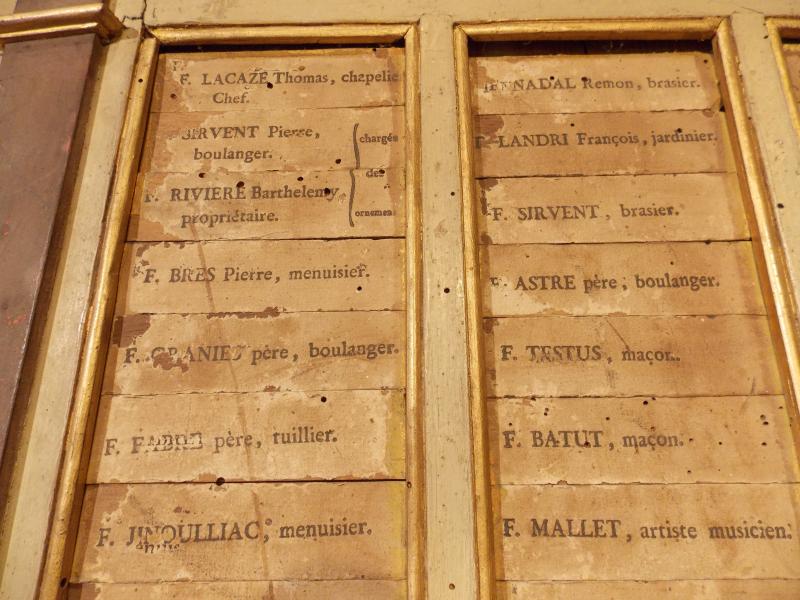 F. LACAZE Thomas, chapelie
Chef.
SIRVENT Pierre,
boulanger.
chargés
F. RIVIERE Barthelemy
propriétaire.
des
ornemens
F. BRES Pierre, menuisier.
F. père, boulanger.
F. FABRE père, tuillier.
F. menuisier.
Remon, brasier.
F. LANDRI François, jardinier.
F. SIRVENT, brasier.
F. ASTRE père, boulanger.
F. TESTUS, maçon.
F. BATUT, maçon.
F. MALLET, artiste musicien.